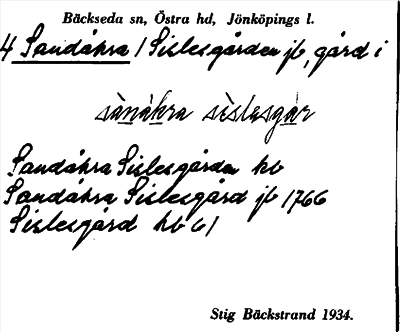 Bäckseda sn, Östra hd, Jönköpings l.
4 Sandåkra / Sislesgården jb, gård i
sànåkra sèslasgår
Sandåkra Sislesgården kb
Sandåkra Sislesgård jb 1766
Sislesgård hb 61
Stig Bäckstrand 1934.